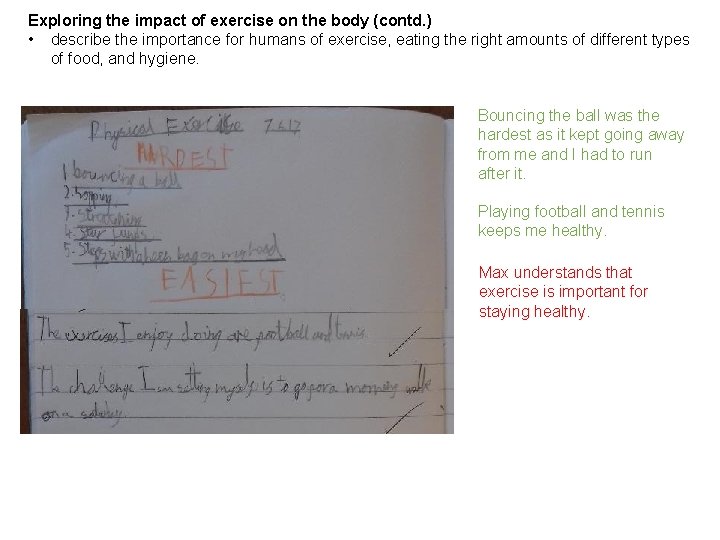 Exploring the impact of exercise on the body (contd.)
• describe the importance for humans of exercise, eating the right amounts of different types
of food, and hygiene.
Physical Exercise 7.6.17
HARDEST
1. bouncing a ball
2. hopping
3. stretching
4. Star
5. Steps with a bean bag on my head
EASIEST
The exercises I enjoy doing are football and tennis.
The challenge I am setting myself is to go for a morning walk
on a
Bouncing the ball was the
hardest as it kept going away
from me and I had to run
after it.
Playing football and tennis
keeps me healthy.
Max understands that
exercise is important for
staying healthy.